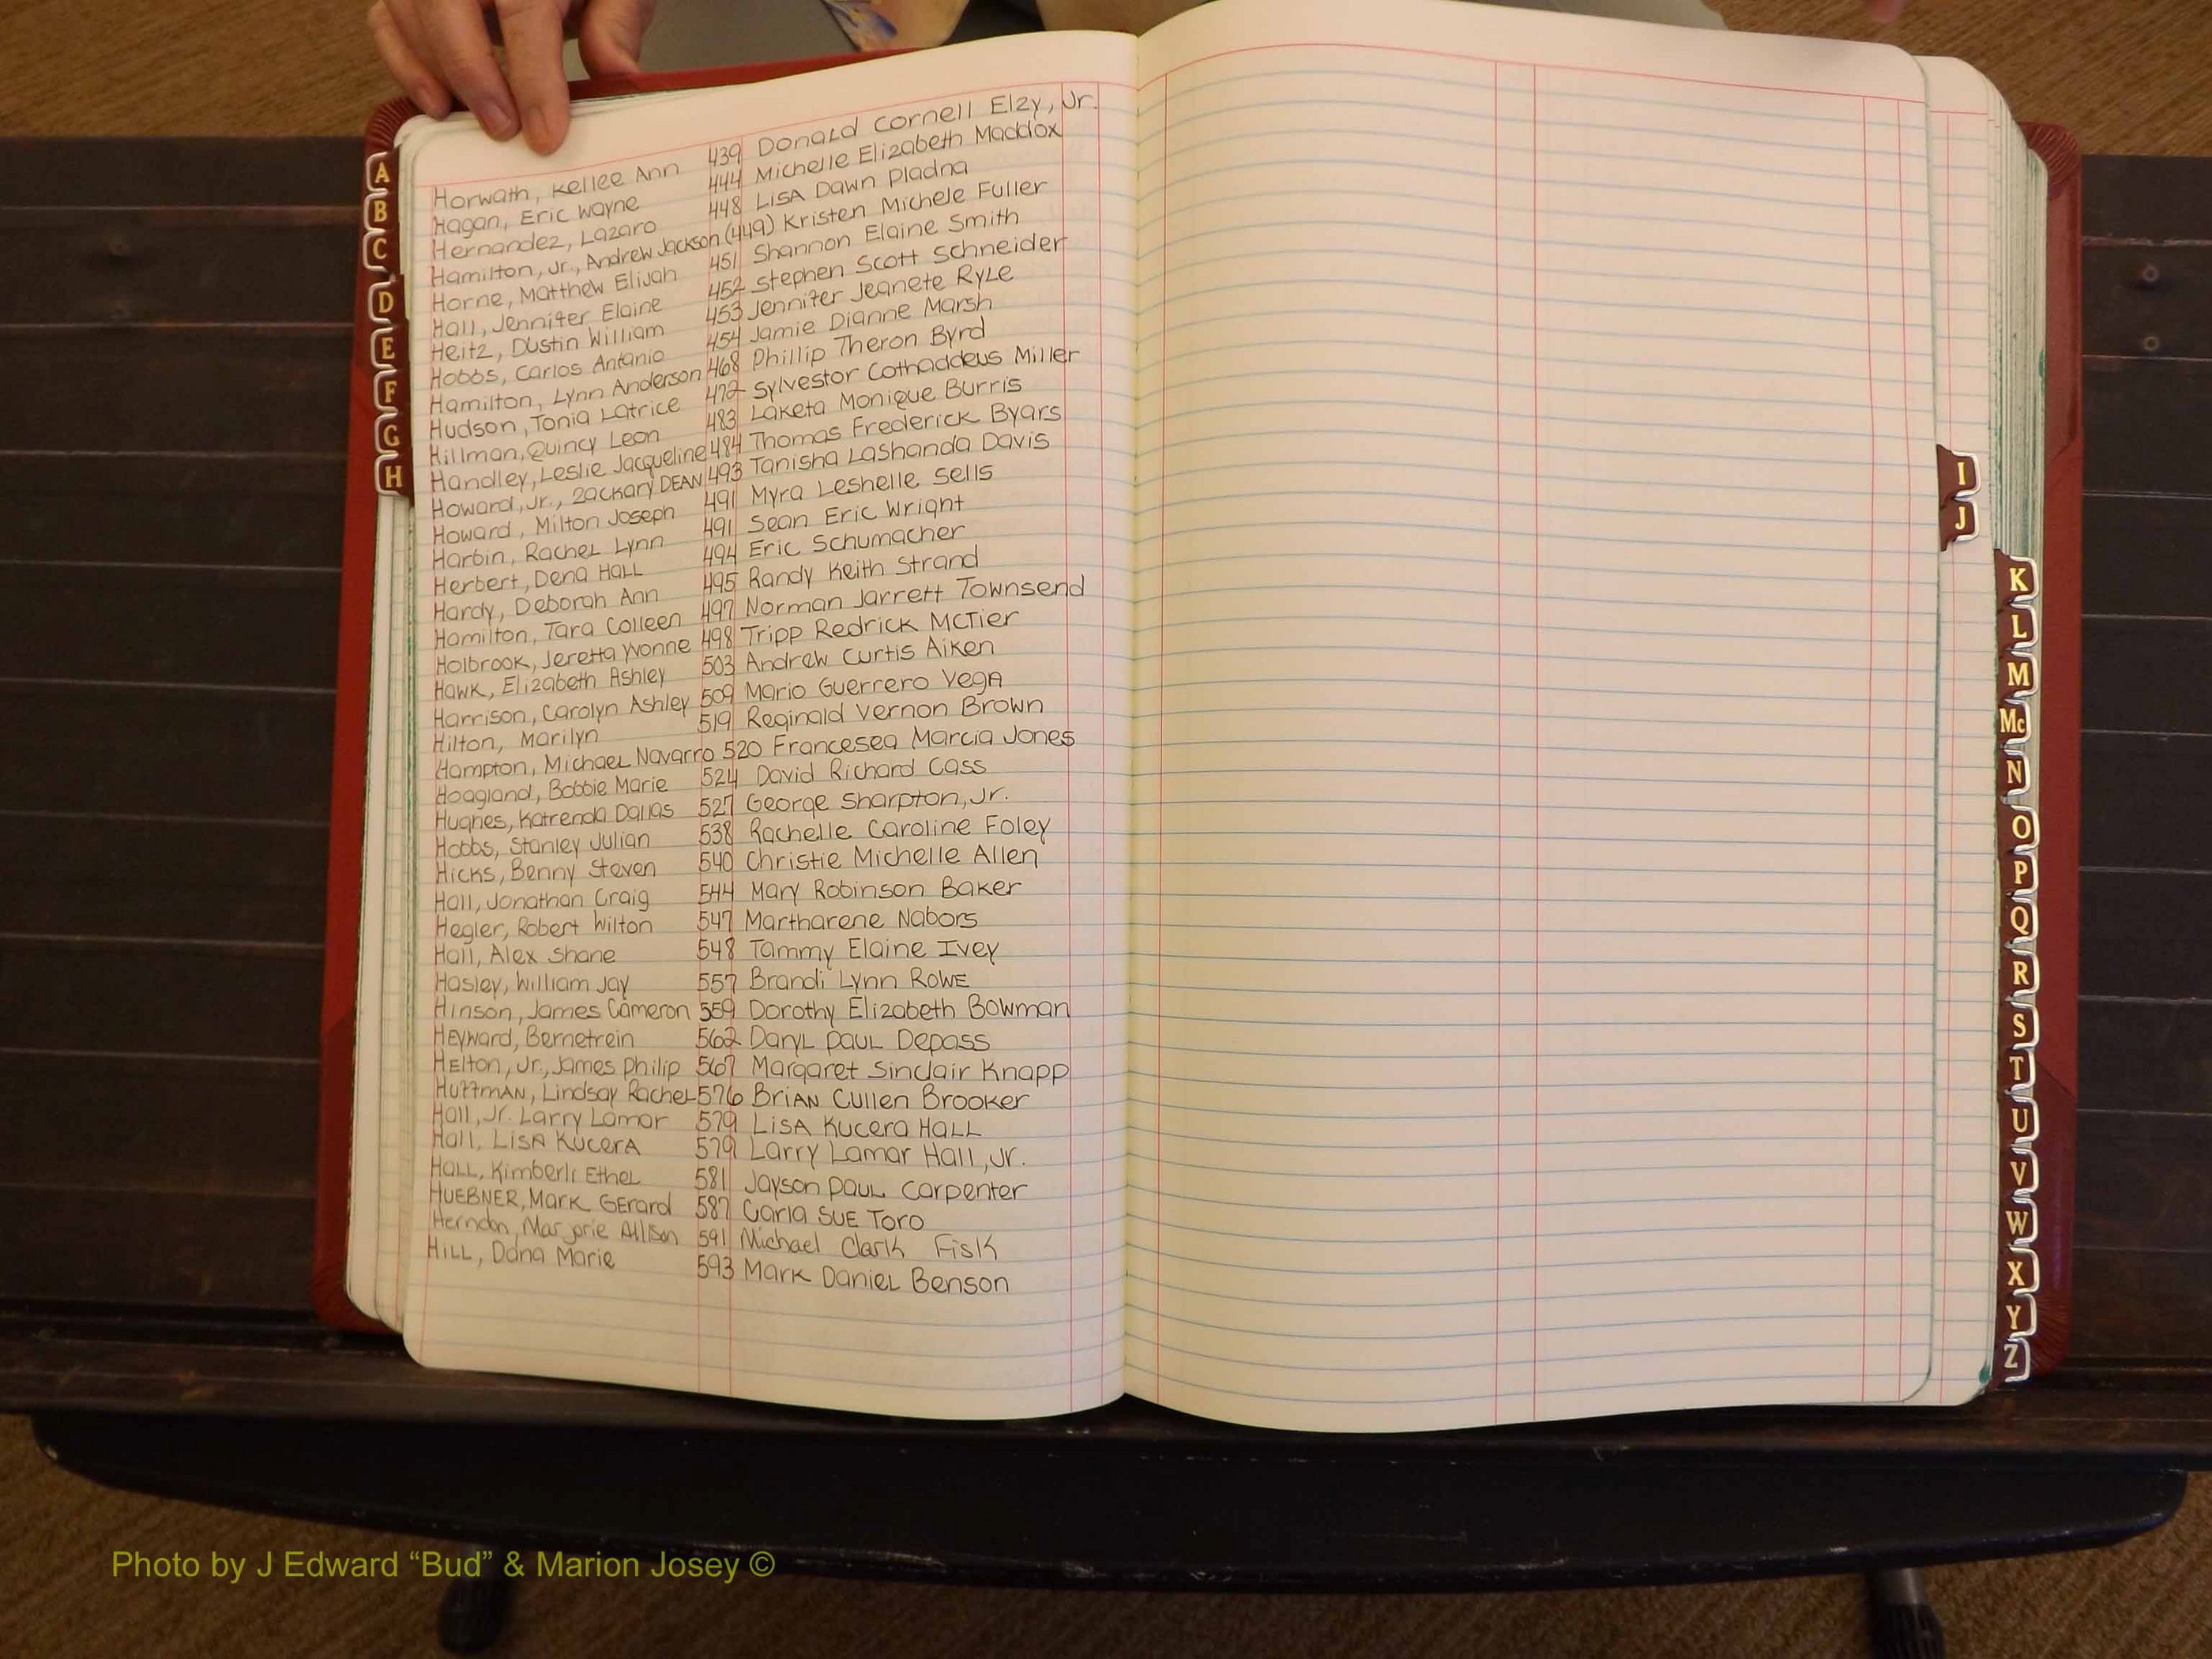 Horwath, Kellee Ann 439 Donald Cornell Elzy, Jr.
Hagan, Eric Wayne 444 Michelle Elizabeth Maddox
Hernandez, Lazaro 448 Lisa Dawn Pladna
Hamilton, Jr., Andrew Jackson (449) Kristen Michele Fuller
Horne, Matthew Elijah 451 Shannon Elaine Smith
Hall, Jennifer Elaine 452 Stephen Scott Schneider
Heitz, Dustin William 453 Jennifer Jeanete Ryle
Hobbs, Carlos Antonio 454 Jamie Dianne Marsh
Hamilton, Lynn Anderson 468 Phillip Theron Byrd
Hudson, Tonia Latrice 472 Sylvestor Cothaddeus Miller
Hillman, Quincy Leon 483 Laketa Monique Burris
Handley, Leslie Jacqueline 484 Thomas Frederick Byars
Howard, Jr., Zackary DEAN 493 Tanisha LaShanda Davis
Howard, Milton Joseph 491 Myra Leshelle Sells
Harbin, Rachel Lynn 491 Sean Eric Wright
Herbert, Dena Hall 494 Eric Schumacher
Hardy, Deborah Ann 495 Randy Keith Strand
Hamilton, Tara Colleen 497 Norman Jarrett Townsend
Holbrook, Jeretta Yvonne 498 Tripp Redrick McTier
Hawk, Elizabeth Ashley 503 Andrew Curtis Aiken
Harrison, Carolyn Ashley 509 Mario Guerrero Vega
Hilton, Marilyn 519 Reginald Vernon Brown
Hampton, Michael Navarro 520 Francesea Marcia Jones
Hoagland, Bobbie Marie 524 David Richard Cass
Hughes, Katrenda Dallas 527 George Sharpton, Jr.
Hobbs, Stanley Julian 538 Rachelle Caroline Foley
Hicks, Benny Steven 540 Christie Michelle Allen
Hall, Jonathan Craig 544 Mary Robinson Baker
Hegler, Robert Wilton 547 Martharene Nabors
Hall, Alex Shane 548 Tammy Elaine Ivey
Hasley, William Jay 557 Brandi Lynn Rowe
Hinson, James Cameron 559 Dorothy Elizabeth Bowman
Heyward, Bernetrein 562 Daryl Paul Depass
Helton, Jr., James Philip 567 Margaret Sinclair Knapp
Huffman, Lindsay Rachel 576 Brian Cullen Brooker
Hall, Jr. Larry Lamar 579 Lisa Kucera Hall
Hall, Lisa Kucera 579 Larry Lamar Hall, Jr.
Hall, Kimberli Ethel 581 Jayson Paul Carpenter
HUEBNER, Mark Gerard 587 Carla Sue Toro
Herndon, Marjorie Allison 591 Michael Clark Fisk
Hill, Dana Marie 593 Mark Daniel Benson
A
B
C
D
E
F
G
H
I
J
K
L
M
Mc
N
O
P
Q
R
S
T
U
V
W
X
Y
Z
Photo by J Edward “Bud” & Marion Josey ©